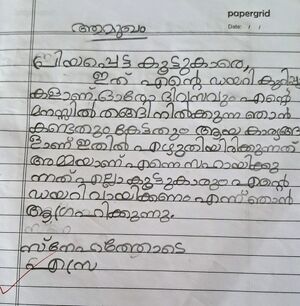 papergrid
Date: / /
ആമുഖം
പ്രിയപ്പെട്ട കൂട്ടുകാരെ,
ഇത് എന്റെ ഡയറി കുറിപ്പു
കളാണ് ഓരോ ദിവസവും എന്റെ
മനസ്സിൽ തങ്ങി നിൽക്കുന്ന ഞാൻ
കണ്ടതും കേട്ടതും ആയ കാര്യങ്ങ
ളാണ് ഇതിൽ എഴുതിയിരിക്കുന്നത്
അമ്മയാണ് എന്നെ സഹായിക്കു
ന്നത് എല്ലാ കൂട്ടുകാരും എന്റെ
ഡയറി വായിക്കണം എന്ന് ഞാൻ
ആഗ്രഹിക്കുന്നു.
സ്നേഹത്തോടെ